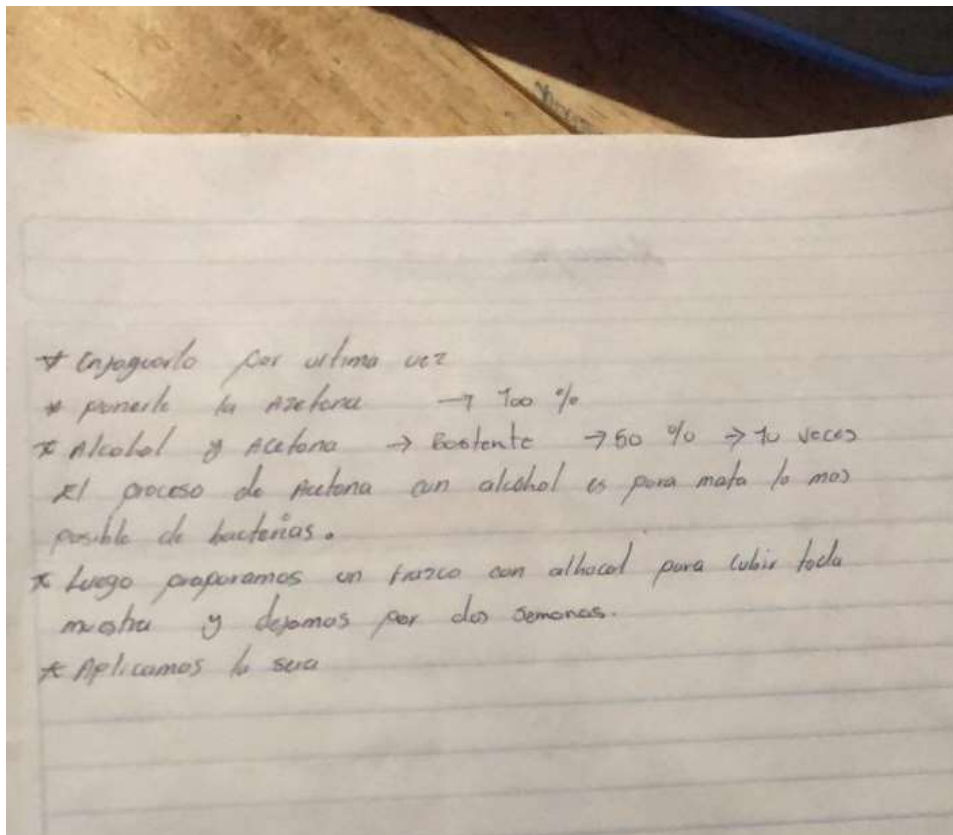 * Enjaguarlo por ultima vez
* ponerle la Azetona → 100 %
* Alcohol y Acetona → Bastente → 50 % → 10 veces
El proceso de Acetona con alcohol es para mata lo mas
posible de bacterias.
* Luego preparamos un frazco con alhocol para cubir toda
muestra y dejamos por dos semanas.
* Aplicamos la sera